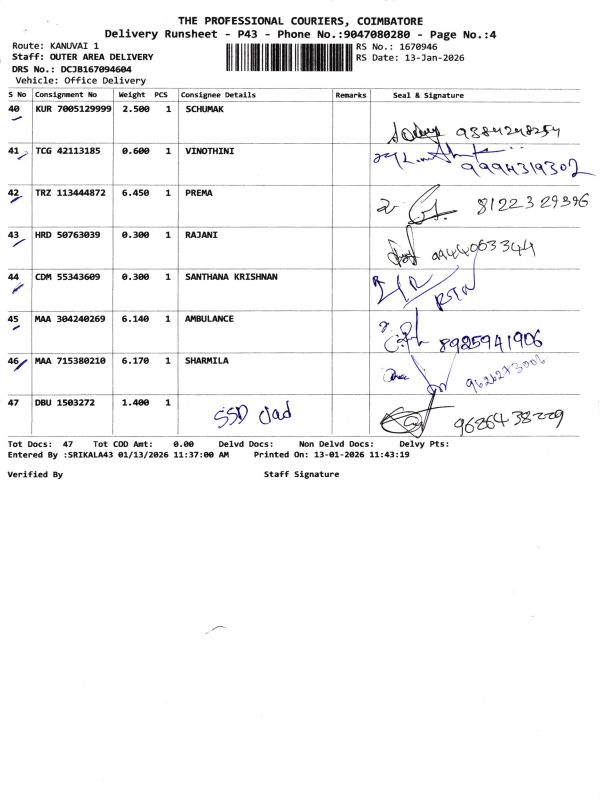 THE PROFESSIONAL COURIERS, COIMBATORE
Delivery Runsheet - P43 - Phone No.:9047080280 - Page No.:4
Route: KANUVAI 1
Staff: OUTER AREA DELIVERY
DRS No.: DCJB167094604
Vehicle: Office Delivery
RS No.: 1670946
RS Date: 13-Jan-2026
S No Consignment No Weight PCS Consignee Details Remarks Seal & Signature
40 KUR 7005129999 2.500 1 SCHUMAK
41 TCG 42113185 0.600 1 VINOTHINI
9994319302
42 TRZ 113444872 6.450 1 PREMA
8122329396
43 HRD 50763039 0.300 1 RAJANI
9444063344
44 CDM 55343609 0.300 1 SANTHANA KRISHNAN
45 MAA 304240269 6.140 1 AMBULANCE
8925941906
46 MAA 715380210 6.170 1 SHARMILA
47 DBU 1503272 1.400 1
Tot Docs: 47 Tot COD Amt: 0.00 Delvd Docs: Non Delvd Docs: Delvy Pts:
Entered By :SRIKALA43 01/13/2026 11:37:00 AM Printed On: 13-01-2026 11:43:19
Verified By Staff Signature